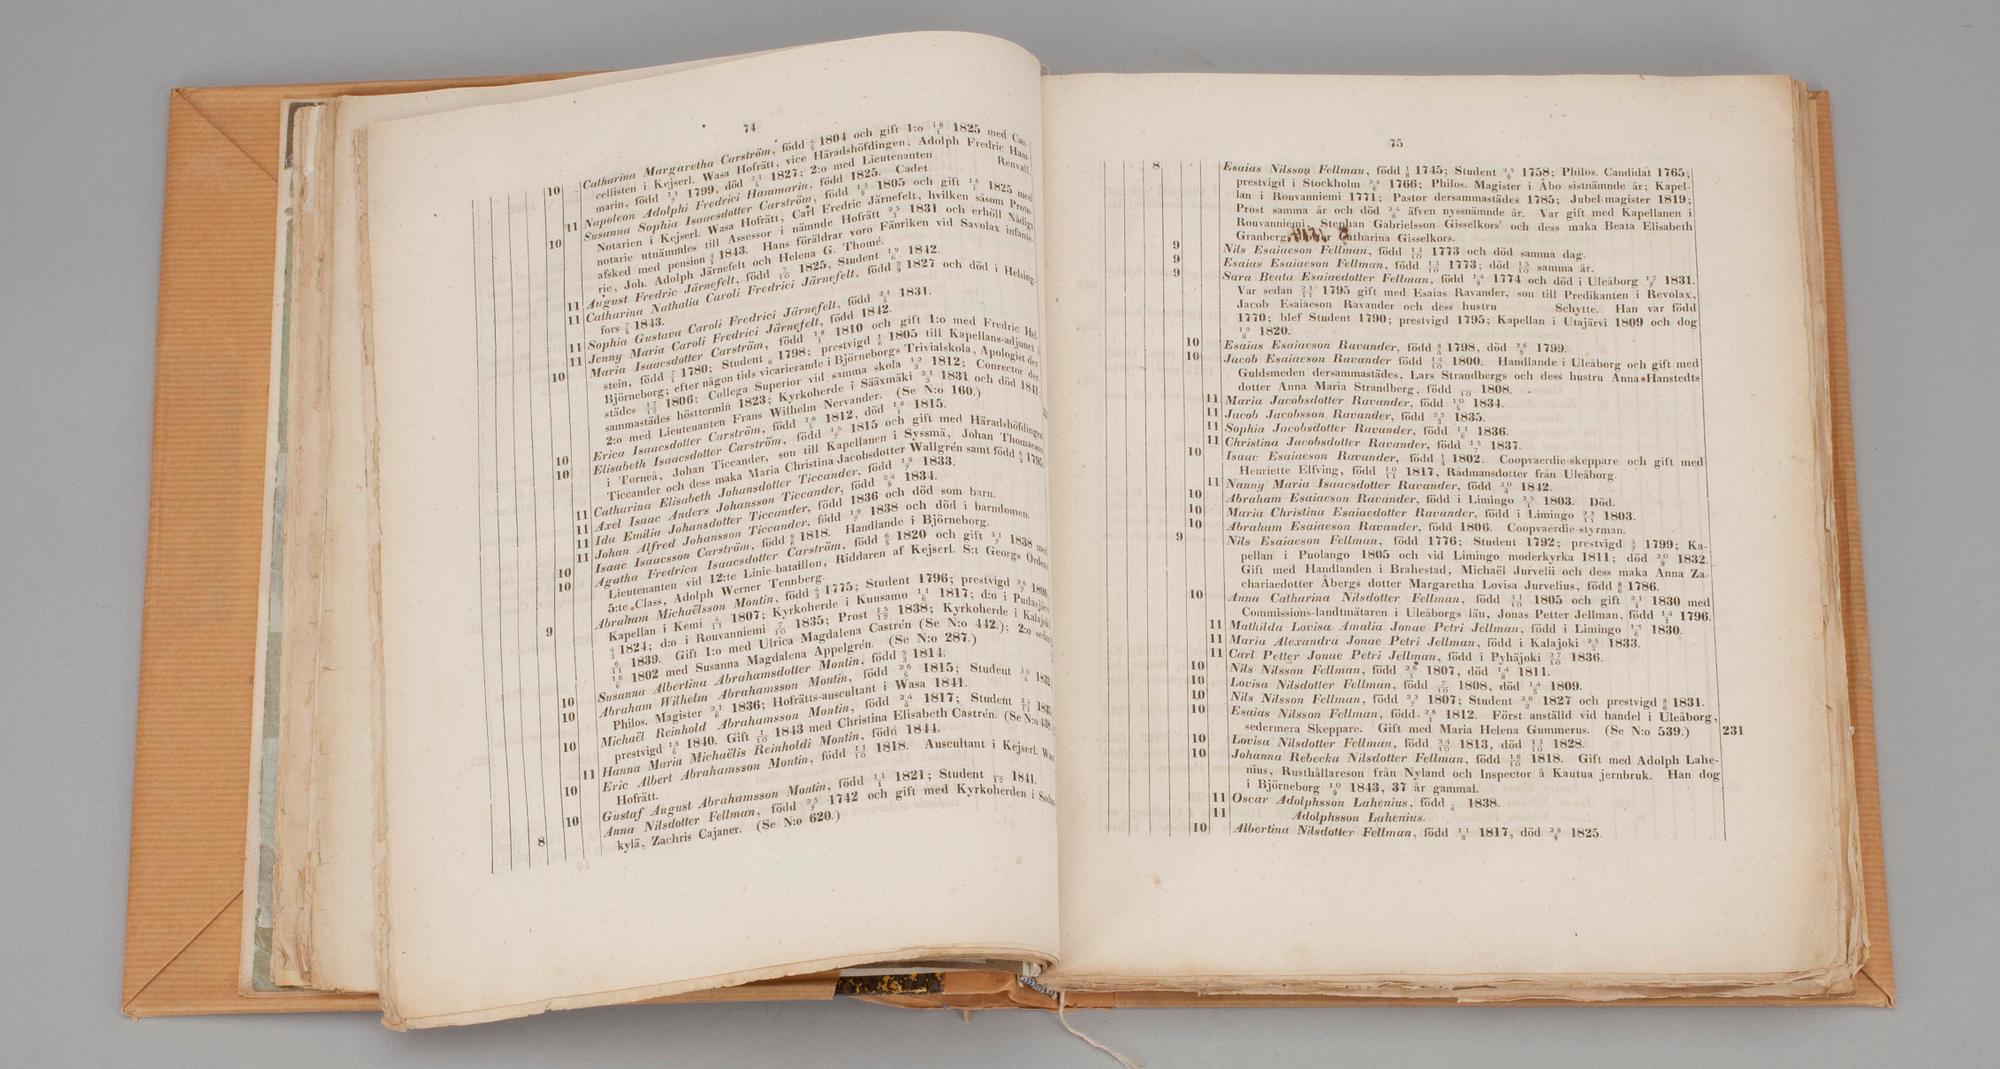 74
10 Catharina Margaretha Carström, född 1804 och gift 1:o 16/1 1825 med Can-
cellisten i Kejserl. Wasa Hofrätt, vice Häradshöfdingen, Adolph Fredric Ham-
marin, född 1799, död 1827; 2:o med Lieutenanten Renvall.
11 Napoleon Adolphi Fredrici Hammarin, född 1825. Cadet.
10 Susanna Sophia Isaacsdotter Carström, född 1805 och gift 1825 med
Notarien i Kejserl. Wasa Hofrätt, Carl Fredric Järnefelt, hvilken såsom Proto-
notarie utnämndes till Assessor i nämnde Hofrätt 1831 och erhöll Nådigt
afsked med pension 1843. Hans föräldrar voro Fänriken vid Savolax infante-
rie, Joh. Adolph Järnefelt och Helena G. Thomé.
11 August Fredric Järnefelt, född 7/10 1825, Student 1842.
11 Catharina Nathalia Caroli Fredrici Järnefelt, född 1827 och död i Helsing-
fors 1843.
11 Sophia Gustava Caroli Fredrici Järnefelt, född 1831.
11 Jenny Maria Caroli Fredrici Järnefelt, född 1842.
10 Maria Isaacsdotter Carström, född 1810 och gift 1:o med Fredric Hel-
stein, född 1780; Student 1798; prestvigd 1805 till Kapellans-adjunct i
Björneborg; efter någon tids vicarierande i Björneborgs Trivialskola, Apologist der-
städes 1806; Collega Superior vid samma skola 1812; Conrector der-
sammastädes hösttermin 1823; Kyrkoherde i Sääxmäki 1831 och död 1841;
2:o med Lieutenanten Frans Wilhelm Nervander. (Se N:o 160.)
10 Erica Isaacsdotter Carström, född 1812, död 1815.
10 Elisabeth Isaacsdotter Carström, född 1815 och gift med Häradshöfdingen
i Torneå, Johan Ticcander, son till Kapellanen i Syssmä, Johan Thomaeson
Ticcander och dess maka Maria Christina Jacobsdotter Wallgrén samt född 1795.
11 Catharina Elisabeth Johansdotter Ticcander, född 1833.
11 Axel Isaac Anders Johansson Ticcander, född 1834.
11 Ida Emilia Johansdotter Ticcander, född 1836 och död som barn.
11 Johan Alfred Johansson Ticcander, född 1838 och död i barndomen.
10 Isaac Isaacsson Carström, född 1818. Handlande i Björneborg.
10 Agatha Fredrica Isaacsdotter Carström, född 1820 och gift 1838 med
Lieutenanten vid 12:te Linie-bataillon, Riddaren af Kejserl. S:t Georgs Ordens
5:te Class, Adolph Werner Tennberg.
9 Abraham Michaëlsson Montin, född 1775; Student 1796; prestvigd 1800;
Kapellan i Kemi 1807; Kyrkoherde i Kuusamo 1817; d:o i Pudasjärvi
1824; d:o i Rouvanniemi 1835; Prost 1838; Kyrkoherde i Kalajoki
1839. Gift 1:o med Ulrica Magdalena Castrén (Se N:o 442.); 2:o sedan
1802 med Susanna Magdalena Appelgrén. (Se N:o 287.)
10 Susanna Albertina Abrahamsdotter Montin, född 1814.
10 Abraham Wilhelm Abrahamsson Montin, född 1815; Student 1832
Philos. Magister 1836; Hofrätts-auscultant i Wasa 1841.
10 Michaël Reinhold Abrahamsson Montin, född 1817; Student
prestvigd 1840. Gift 1843 med Christina Elisabeth Castrén. (Se N:o
11 Hanna Maria Michaëlis Reinholdi Montin, född 1844.
10 Eric Albert Abrahamsson Montin, född 11/10 1818. Auscultant i Kejserl. Wasa
Hofrätt.
10 Gustaf August Abrahamsson Montin, född 11/1 1821; Student 1841.
8 Anna Nilsdotter Fellman, född 1742 och gift med Kyrkoherden i Sodan-
kylä, Zachris Cajaner. (Se N:o 620.)
75
8 Esaias Nilsson Fellman, född 1745; Student 1758; Philos. Candidat 1765;
prestvigd i Stockholm 1766; Philos. Magister i Åbo sistnämnde år; Kapel-
lan i Rouvanniemi 1771; Pastor dersammastädes 1785; Jubel-magister 1819;
Prost samma år och död äfven nyssnämnde år. Var gift med Kapellanen i
Rouvanniemi, Stephan Gabrielsson Gisselkors' och dess maka Beata Elisabeth
Granbergs Catharina Gisselkors.
9 Nils Esaiaeson Fellman, född 13/10 1773 och död samma dag.
9 Esaias Esaiaeson Fellman, född 13/10 1773; död 15/10 samma år.
9 Sara Beata Esaiaedotter Fellman, född 1774 och död i Uleåborg 1831.
Var sedan 1795 gift med Esaias Ravander, son till Predikanten i Revolax,
Jacob Esaiaeson Ravander och dess hustru Schytte. Han var född
1770; blef Student 1790; prestvigd 1795; Kapellan i Utajärvi 1809 och dog
1820.
10 Esaias Esaiaeson Ravander, född 1798, död 1799.
10 Jacob Esaiaeson Ravander född 1800. Handlande i Uleåborg och gift med
Guldsmeden dersammastädes, Lars Strandbergs och dess hustru Anna Hanstedts
dotter Anna Maria Strandberg, född 10 1808.
11 Maria Jacobsdotter Ravander, född 1834.
11 Jacob Jacobsson Ravander, född 1835.
11 Sophia Jacobsdotter Ravander, född 1836.
11 Christina Jacobsdotter Ravander, född 1837.
10 Isaac Esaiaeson Ravander, född 1802. Coopvaerdie-skeppare och gift med
Henriette Elfving, född 10/11 1817, Rådmansdotter från Uleåborg.
11 Nanny Maria Isaacsdotter Ravander, född 1842.
10 Abraham Esaiaeson Ravander, född i Limingo 1803. Död.
10 Maria Christina Esaiaedotter Ravander, född i Limingo 1803.
10 Abraham Esaiaeson Ravander, född 1806. Coopvaerdie-styrman.
9 Nils Esaiaeson Fellman, född 1776; Student 1792; prestvigd 1799; Ka-
pellan i Puolango 1805 och vid Limingo moderkyrka 1811; död 1832.
Gift med Handlanden i Brahestad, Michaël Jurvelii och dess maka Anna Za-
chariaedotter Åbergs dotter Margaretha Lovisa Jurvelius, född 1786.
10 Anna Catharina Nilsdotter Fellman, född 31/10 1805 och gift 1830 med
Commissions-landtmätaren i Uleåborgs län, Jonas Petter Jellman, född 1796.
11 Mathilda Lovisa Amalia Jonae Petri Jellman, född i Limingo 1830.
11 Maria Alexandra Jonae Petri Jellman, född i Kalajoki 1833.
11 Carl Petter Jonae Petri Jellman, född i Pyhäjoki 27/10 1836.
10 Nils Nilsson Fellman, född 1807, död 1811.
10 Lovisa Nilsdotter Fellman, född 7/10 1808, död 1809.
10 Nils Nilsson Fellman, född 1807; Student 1827 och prestvigd 1831.
10 Esaias Nilsson Fellman, född 1812. Först anställd vid handel i Uleåborg,
sedermera Skeppare. Gift med Maria Helena Gummerus. (Se N:o 539.) 231
10 Lovisa Nilsdotter Fellman, född 1813, död 1828.
10 Johanna Rebecka Nilsdotter Fellman, född 16/10 1818. Gift med Adolph Lahe-
nius, Rusthållareson från Nyland och Inspector å Kautua jernbruk. Han dog
i Björneborg 1843, 37 år gammal.
11 Oscar Adolphsson Lahenius, född 6 1838.
11 Adolphsson Lahenius.
10 Albertina Nilsdotter Fellman, född 1817, död 1825.